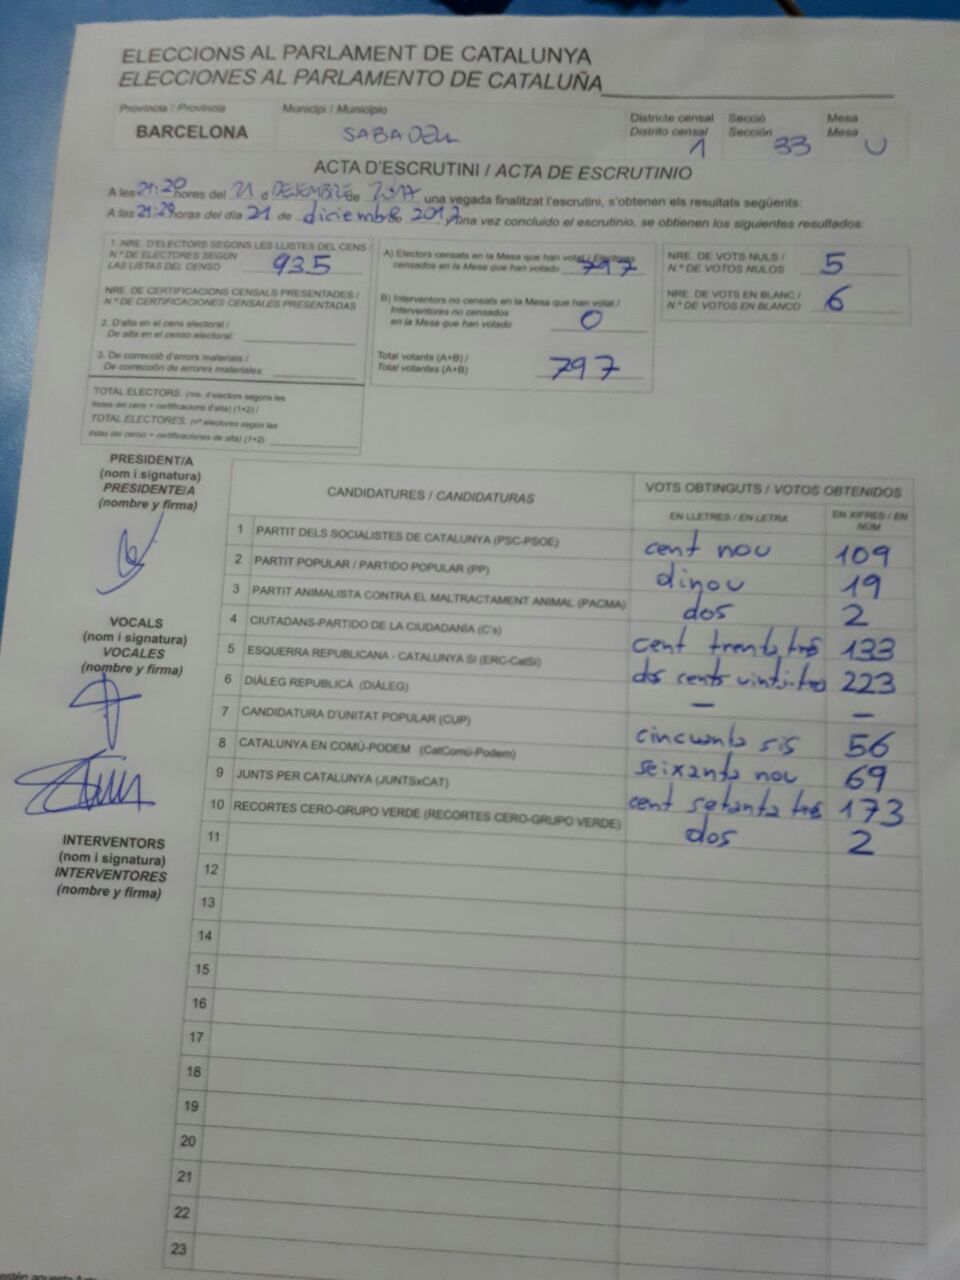 ELECCIONS AL PARLAMENT DE CATALUNYA
ELECCIONES AL PARLAMENTO DE CATALUÑA
Província / Provincia
BARCELONA
Municipi / Municipio
SABADELL
Districte censal
Distrito censal
1
Secció
Sección
33
Mesa
Mesa
U
ACTA D'ESCRUTINI / ACTA DE ESCRUTINIO
A les 21:20 hores del 21 d DESEMBRE de 2017, una vegada finalitzat l'escrutini, s'obtenen els resultats següents:
A las 21:29 horas del día 21 de diciembre 2017 y una vez concluido el escrutinio, se obtienen los siguientes resultados:
1. NRE. D'ELECTORS SEGONS LES LLISTES DEL CENS /
N.º DE ELECTORES SEGÚN
LAS LISTAS DEL CENSO
935
NRE. DE CERTIFICACIONS CENSALS PRESENTADES /
N.º DE CERTIFICACIONES CENSALES PRESENTADAS
2. D'alta en el cens electoral /
De alta en el censo electoral:
3. De correcció d'errors materials /
De corrección de errores materiales:
TOTAL ELECTORS. (nre. d'electors segons les
llistes del cens + certificacions d'alta) (1+2) /
TOTAL ELECTORES. (nº electores según las
listas del censo + certificaciones de alta) (1+2)
A) Electors censats en la Mesa que han votat / Electores
censados en la Mesa que han votado
797
B) Interventors no censats en la Mesa que han votat /
Interventores no censados
en la Mesa que han votado
0
Total votants (A+B) /
Total votantes (A+B)
797
NRE. DE VOTS NULS /
N.º DE VOTOS NULOS
5
NRE. DE VOTS EN BLANC /
N.º DE VOTOS EN BLANCO
6
PRESIDENT/A
(nom i signatura)
PRESIDENTE/A
(nombre y firma)
VOCALS
(nom i signatura)
VOCALES
(nombre y firma)
INTERVENTORS
(nom i signatura)
INTERVENTORES
(nombre y firma)
CANDIDATURES / CANDIDATURAS
VOTS OBTINGUTS / VOTOS OBTENIDOS
EN LLETRES / EN LETRA
EN XIFRES / EN
NÚM
1 PARTIT DELS SOCIALISTES DE CATALUNYA (PSC-PSOE) cent nou 109
2 PARTIT POPULAR / PARTIDO POPULAR (PP) dinou 19
3 PARTIT ANIMALISTA CONTRA EL MALTRACTAMENT ANIMAL (PACMA) dos 2
4 CIUTADANS-PARTIDO DE LA CIUDADANÍA (C's) cent trenta tres 133
5 ESQUERRA REPUBLICANA - CATALUNYA SÍ (ERC-CatSí) dos cents vint-i-tres 223
6 DIÀLEG REPUBLICÀ (DIÀLEG) — —
7 CANDIDATURA D'UNITAT POPULAR (CUP) cincuanta sis 56
8 CATALUNYA EN COMÚ-PODEM (CatComú-Podem) seixanta nou 69
9 JUNTS PER CATALUNYA (JUNTSxCAT) cent setanta tres 173
10 RECORTES CERO-GRUPO VERDE (RECORTES CERO-GRUPO VERDE) dos 2
11
12
13
14
15
16
17
18
19
20
21
22
23